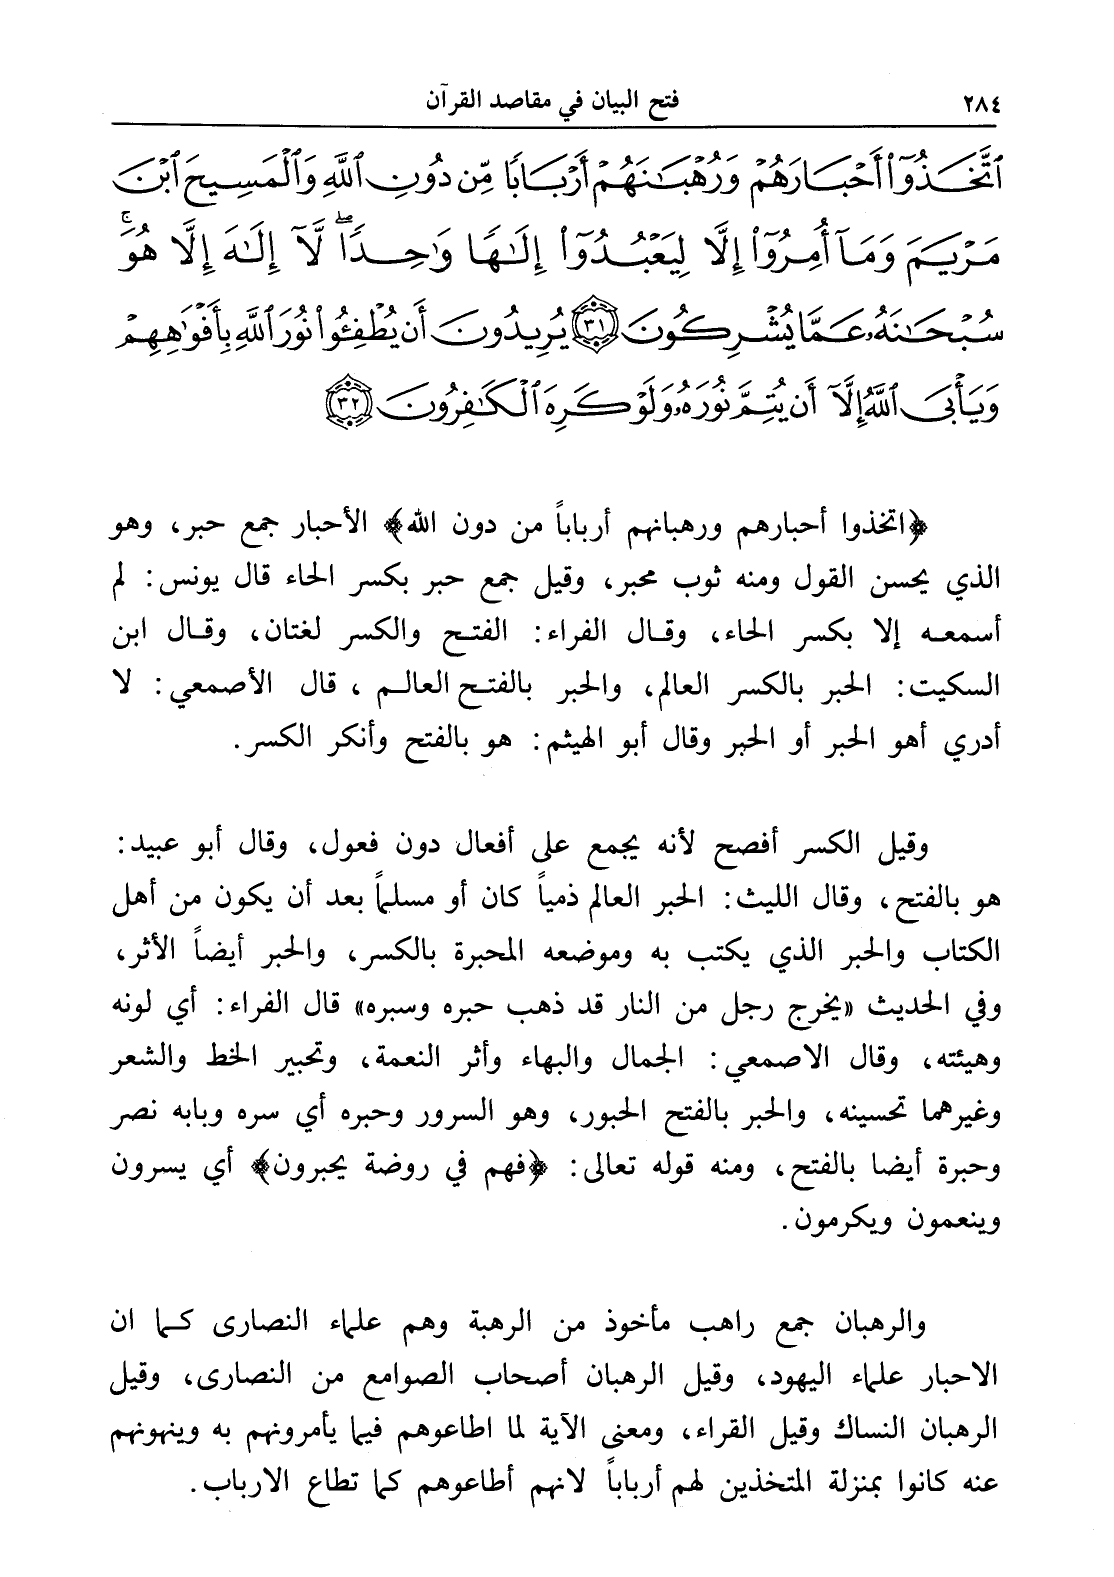 ٢٨٤ فتح البيان في مقاصد القرآن
ٱتَّخَذُوٓا۟ أَحْبَارَهُمْ وَرُهْبَٰنَهُمْ أَرْبَابًا مِّن دُونِ ٱللَّهِ وَٱلْمَسِيحَ ٱبْنَ
مَرْيَمَ وَمَآ أُمِرُوٓا۟ إِلَّا لِيَعْبُدُوٓا۟ إِلَٰهًا وَٰحِدًا ۖ لَّآ إِلَٰهَ إِلَّا هُوَ ۚ
سُبْحَٰنَهُۥ عَمَّا يُشْرِكُونَ ٣١ يُرِيدُونَ أَن يُطْفِـُٔوا۟ نُورَ ٱللَّهِ بِأَفْوَٰهِهِمْ
وَيَأْبَى ٱللَّهُ إِلَّآ أَن يُتِمَّ نُورَهُۥ وَلَوْ كَرِهَ ٱلْكَٰفِرُونَ ٣٢
﴿اتخذوا أحبارهم ورهبانهم أرباباً من دون الله﴾ الأحبار جمع حبر، وهو
الذي يحسن القول ومنه ثوب محبر، وقيل جمع حبر بكسر الحاء قال يونس: لم
أسمعه إلا بكسر الحاء، وقال الفراء: الفتح والكسر لغتان، وقال ابن
السكيت: الحبر بالكسر العالم، والحبر بالفتح العالم ، قال الأصمعي: لا
أدري أهو الحبر أو الحبر وقال أبو الهيثم: هو بالفتح وأنكر الكسر.
وقيل الكسر أفصح لأنه يجمع على أفعال دون فعول، وقال أبو عبيد:
هو بالفتح، وقال الليث: الحبر العالم ذمياً كان أو مسلماً بعد أن يكون من أهل
الكتاب والحبر الذي يكتب به وموضعه المحبرة بالكسر، والحبر أيضاً الأثر،
وفي الحديث «يخرج رجل من النار قد ذهب حبره وسبره» قال الفراء: أي لونه
وهيئته، وقال الاصمعي: الجمال والبهاء وأثر النعمة، وتحبير الخط والشعر
وغيرهما تحسينه، والحبر بالفتح الحبور، وهو السرور وحبره أي سره وبابه نصر
وحبرة أيضا بالفتح، ومنه قوله تعالى: ﴿فهم في روضة يحبرون﴾ أي يسرون
وينعمون ويكرمون.
والرهبان جمع راهب مأخوذ من الرهبة وهم علماء النصارى كما ان
الاحبار علماء اليهود، وقيل الرهبان أصحاب الصوامع من النصارى، وقيل
الرهبان النساك وقيل القراء، ومعنى الآية لما اطاعوهم فيما يأمرونهم به وينهونهم
عنه كانوا بمنزلة المتخذين لهم أرباباً لانهم أطاعوهم كما تطاع الارباب.